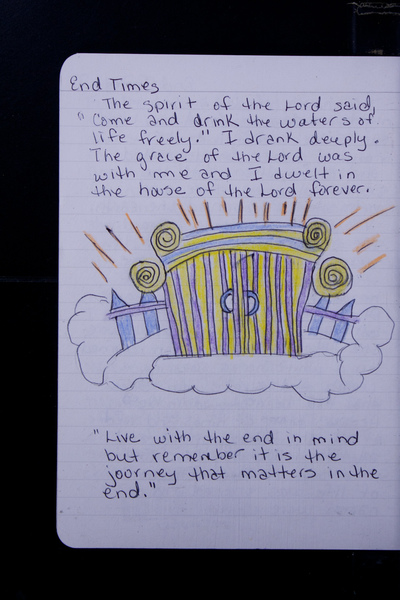 End Times
The spirit of the Lord said,
"Come and drink the waters of
life freely." I drank deeply.
The grace of the Lord was
with me and I dwelt in
the house of the Lord forever.
"Live with the end in mind
but remember it is the
journey that matters in the
end."